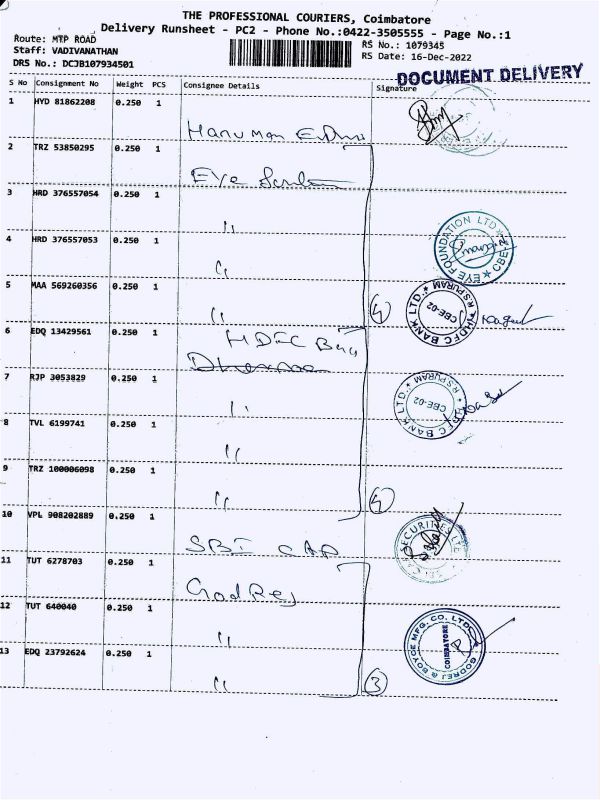 THE PROFESSIONAL COURIERS, Coimbatore
Delivery Runsheet - PC2 - Phone No.:0422-3505555 - Page No.:1
Route: MTP ROAD
Staff: VADIVANATHAN
DRS No.: DCJB107934501
RS No.: 1079345
RS Date: 16-Dec-2022
DOCUMENT DELIVERY
S No Consignment No Weight PCS Consignee Details Signature
1 HYD 81862208 0.250 1
Hanuman
2 TRZ 53850295 0.250 1
Eye
3 HRD 376557054 0.250 1 "
4 HRD 376557053 0.250 1 "
EYE FOUNDATION LTD ★ CBE-2 ★
5 MAA 569260356 0.250 1 " 4
HDFC BANK LTD. ★ R.S PURAM ★ CBE-02
6 EDQ 13429561 0.250 1 HDFC Bank
7 RJP 3053829 0.250 1 "
HDFC BANK LTD. ★ R.S PURAM ★ CBE-02
8 TVL 6199741 0.250 1 "
9 TRZ 100006098 0.250 1 " 4
10 VPL 908202889 0.250 1 SBI CAP
SECURITIES LTD
11 TUT 6278703 0.250 1 Godrej
12 TUT 640040 0.250 1 "
GODREJ & BOYCE MFG. CO. LTD. COIMBATORE
13 EDQ 23792624 0.250 1 " 3